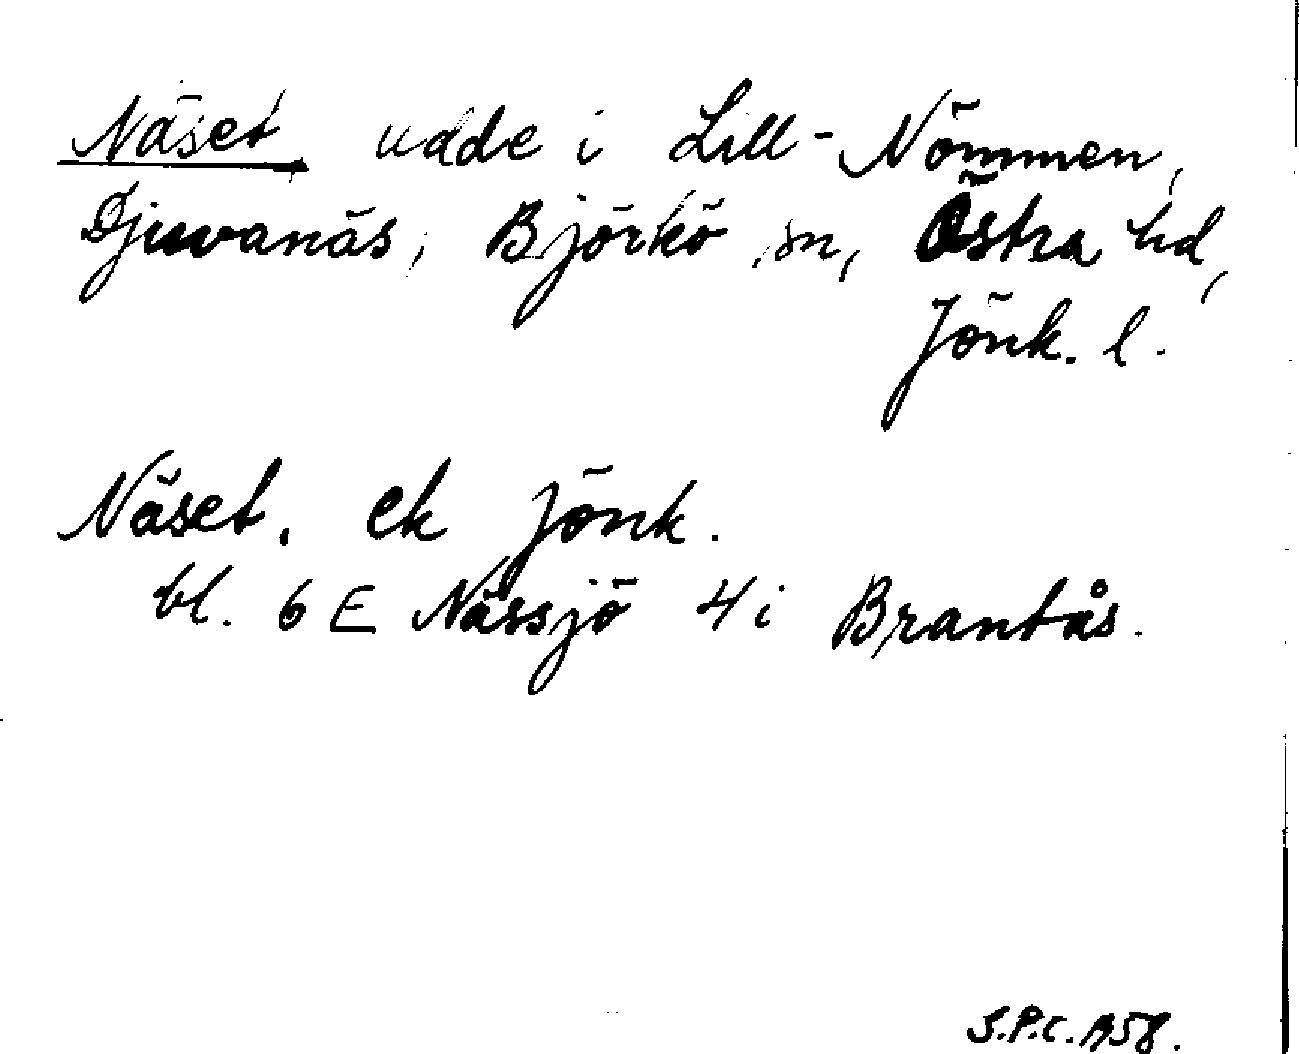 Näset udde i Lill-Nömmen,
Djuvanäs, Björkö sn, Östra hd,
Jönk. l.
Näset. ek Jönk.
bl. 6 E Nässjö 4 i Brantås.
S.P.C. 1958.